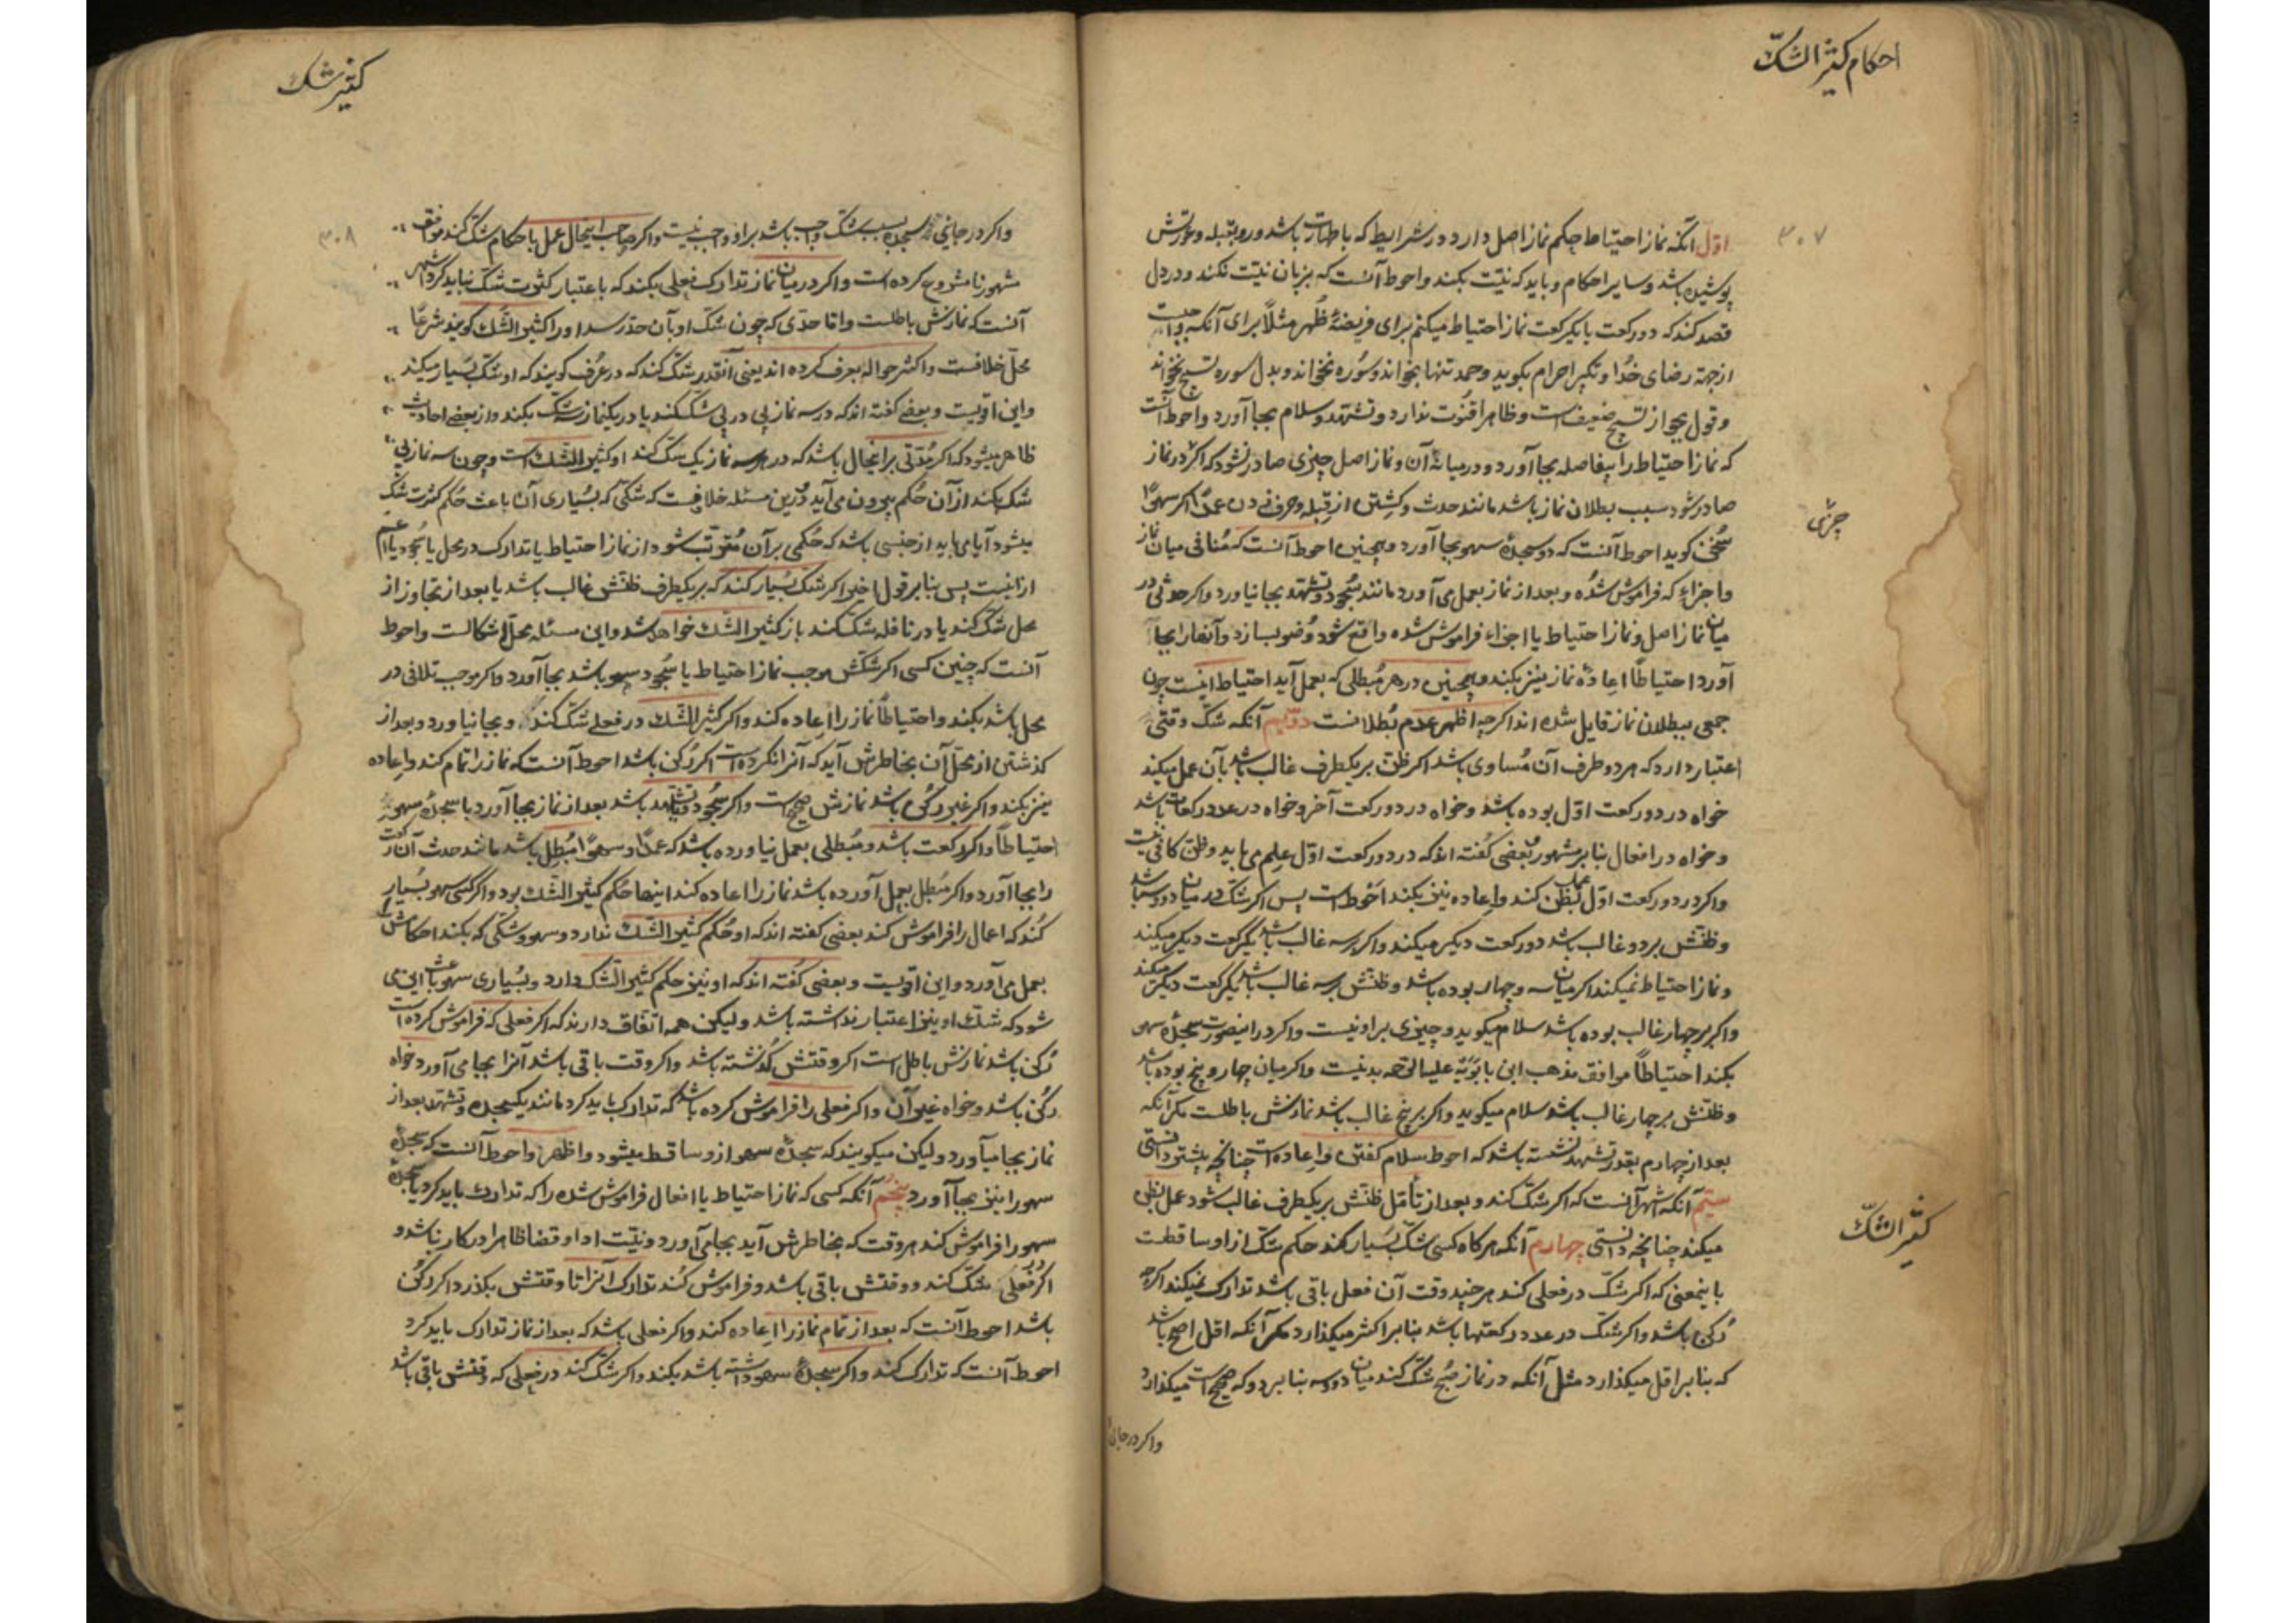 احکام کثیر الشک
۳۰۷
اوّل آنکه نماز احتیاط حکم نماز اصل دارد در شرایط که با طهارت باشد و رو بقبله و عورتش
پوشیده باشد و سایر احکام و باید که نیّت بکند و احوط آنست که بزبان نیّت نکند و در دل
قصد کند که دو رکعت یا یکرکعت نماز احتیاط میکنم برای فریضهٔ ظُهر مثلاً برای آنکه واجبست
از جهة رضای خدُا و تکبیر احرام بکوید و حمد تنها بخواند و سُوره نخواند و بدل سوره تسبیح نخواند
و قول بجواز تسبیح ضعیفست و ظاهرا قنُوت ندارد و تشهّد و سلام بجا آورد و احوط آنست
که نماز احتیاط را بیفاصله بجا آورد و در میانهٔ آن و نماز اصل چیزی صادر نشود که اکر در نماز
صادر شود سبب بطلان نماز باشد مانند حدث و کشتن از قِبله و حرف زدن عمدًا اکر سهوًا
سُخن کوید احوط آنست که دو سجدهٔ سهو بجا آورد و همچنین احوط آنست که مُنافی میان نماز
و اجزاءِ که فراموش شدُه و بعد از نماز بعمل می آورد مانند سُجود و تشهّد بجا نیاورد و اکر حدثی در
میان نماز اصل و نماز احتیاط یا اجزاء فراموش شده واقع شود وُضو بسازد و آنها را بجا
آورد احتیاطًا اِعادهٔ نماز نیز بکند و همچنین در هر مُبطلی که بعمل آید احتیاط اینست چون
جمعی ببطلان نماز قایل شده اند اکرچه اظهر عدم بُطلانست دوّیم آنکه شکّ وقتی
اعتبار دارد که هر دو طرف آن مُساوی باشد اکر ظن بر یکطرف غالب باشد بآن عمل میکند
خواه در دو رکعت اوّل بوده باشد و خواه در دو رکعت آخر و خواه در عدد رکعات باشد
و خواه در افعال بنابر مشهور و بعضی کفته اند که در دو رکعت اوّل عِلم می باید و ظن کافی نیست
و اکر در دو رکعت اول عمل بظن کند و اِعاده نیز بکند اَحْوَط است پس اکر شکّ در میان دو و سه باشد
و ظنّش بر دو غالب باشد دو رکعت دیکر میکند و اکر بر سه غالب باشد یکرکعت دیکر میکند
و نماز احتیاط نمیکند اکر میان سه و چهار بوده باشد و ظنّش بر سه غالب باشد یکرکعت دیکر میکند
و اکر بر چهار غالب بوده باشد سلام میکوید و چیزی بر او نیست و اکر در اینصورت سجدهٔ سهو
بکند احتیاطًا موافق مذهب ابن بابَوَیْه علیه الرّحمه بد نیست و اکر میان چهار و پنج بوده باشد
و ظنّش بر چهار غالب باشد سلام میکوید و اکر بر پنج غالب باشد نمازش باطلست مکر آنکه
بعد از چهارم بقدر تشهّد نشسته باشد که احوط سلام کفتن و اِعاده است چنانچه پیشتر دانستی
سیّم آنکه اشهر آنست که اکر شکّ کند و بعد از تأمّل ظنّش بر یکطرف غالب شود عمل بظن
میکند چنانچه دانستی چهارم آنکه هر کاه کسی شکّ بسیار کند حکم شکّ از او ساقطست
باینمعنی که اکر شکّ در فعلی کند هر چند وقت آن فعل باقی باشد تدارک نمیکند اکرچه
رُکن باشد و اکر شکّ در عدد رکعتها باشد بنابر اکثر میکذارد مکر آنکه اقل اصحّ باشد
که بنابر اقل میکذارد مثل آنکه در نماز صُبح شکّ کند میان دو و سه بنا بر دو که صحیح است میکذارد
و اکر در جائی
کثیر الشکّ
کثیر شک
۳۰۸
و اکر در جایی که سجده بسبب شکّ واجب باشد بر او واجب نیست و اکر صاحب اینحال عمل باحکام شکّ کند موافق
مشهور نامشروع کرده است و اکر در میان نماز تدارک فعلی بکند که باعتبار کثرت شکّ نباید کرد اشهر
آنست که نمازش باطلست و امّا حدّی که چون شکّ او بآن حدّ رسد او را کثیر الشّک کویند شرعًا
محلّ خلافست و اکثر حواله بعرف کرده اند یعنی آنقدر شکّ کند که در عُرف کویند که او شکّ بسیار میکند
و این اقویست و بعضی کفته اند که در سه نماز پی در پی شکّ کند یا در یکنماز سه شکّ بکند و از بعضی احادیث
ظاهر میشود که اکر مُدّتی بر اینحال باشد که در هر سه نماز یک شکّ کند او کثیر الشّک است و چون سه نماز بی
شک بکند از آن حُکم بیرون می آید و درین مسئله خلافیست که شکّی که بسُیاری آن باعث حُکم کثرت شکّ
میشود آیا می باید از جنسی باشد که حُکمی بر آن مُترتّب شود از نماز احتیاط یا تدارک در محل یا سُجود یا اعم
از اینست پس بنا بر قول اخیر اکر شکّ بسُیار کند که بر یکطرف ظنّش غالب باشد یا بعد از تجاوز از
محل شکّ کند یا در نافله شکّ کند باز کثیر الشّک خواهد شد و این مسئله محلّ اشکالست و احوط
آنست که چنین کسی اکر شکّش موجب نماز احتیاط یا سُجود سهو باشد بجا آورد و اکر موجب تلافی در
محل باشد بکند و احتیاطًا نماز را اِعاده کند و اکر کثیر الشّک در فعلی شکّ کند و بجا نیاورد و بعد از
کذشتن از محلّ آن بخاطرش آید که آنرا نکرده است اکر رُکن باشد احوط آنست که نماز را تمام کند و اِعاده
نیز بکند و اکر غیر رکن باشد نمازش صحیح است و اکر سُجود و تشهّد باشد بعد از نماز بجا آورد با سجدهٔ سهو
احتیاطًا و اکر رکعت باشد و مُبطلی بعمل نیاورده باشد که عمدًا و سهوًا مُبطِل باشد مانند حدث آن رکعت
را بجا آورد و اکر مُبطل بعمل آورده باشد نماز را اعاده کند اینها حُکم کثیر الشّک بود و اکر کسی سهو بسُیار
کُند که اعمال را فراموش کند بعضی کفته اند که او حُکم کثیر الشّک ندارد و سهو و شکّی که بکند احکامش را
بعمل می آورد و این اقویست و بعضی کفُته اند که او نیز حکم کثیر الشّک دارد و بسُیاری سهو باعث این می
شود که شکّ او نیز اعتبار نداشته باشد و لیکن همه اتفّاق دارند که اکر فعلی که فراموش کرده است
رُکن باشد نمازش باطل است اکر وقتش کُذشته باشد و اکر وقت باقی باشد آنرا بجا می آورد خواه
رکُن باشد و خواه غیر آن و اکر فعلی را فراموش کرده باشد که تدارک باید کرد مانند یکسجده و تشهّد بعد از
نماز بجا میآورد و لیکن میکویند که سجدهٔ سهو از و ساقط میشود و اظهر و احوط آنست که سجدهٔ
سهو را نیز بجا آورد پنجم آنکه کسی که نماز احتیاط یا افعال فراموش شده را که تدارک باید کرد یا سجدهٔ
سهو را فراموش کند هر وقت که بخاطرش آید بجا می آورد و نیّت ادا و قضا ظاهرا در کار نباشد و
اکر در فعلی شکّ کند و وقتش باقی باشد و فراموش کُند تدارک آنرا تا وقتش بکذرد اکر رکُن
باشد احوط آنست که بعد از تمام نماز را اِعاده کند و اکر فعلی باشد که بعد از نماز تدارک باید کرد
احوط آنست که تدارک کند و اکر سجدهٔ سهو داشته باشد بکند و اکر شکّ کند در فعلی که وقتش باقی باشد